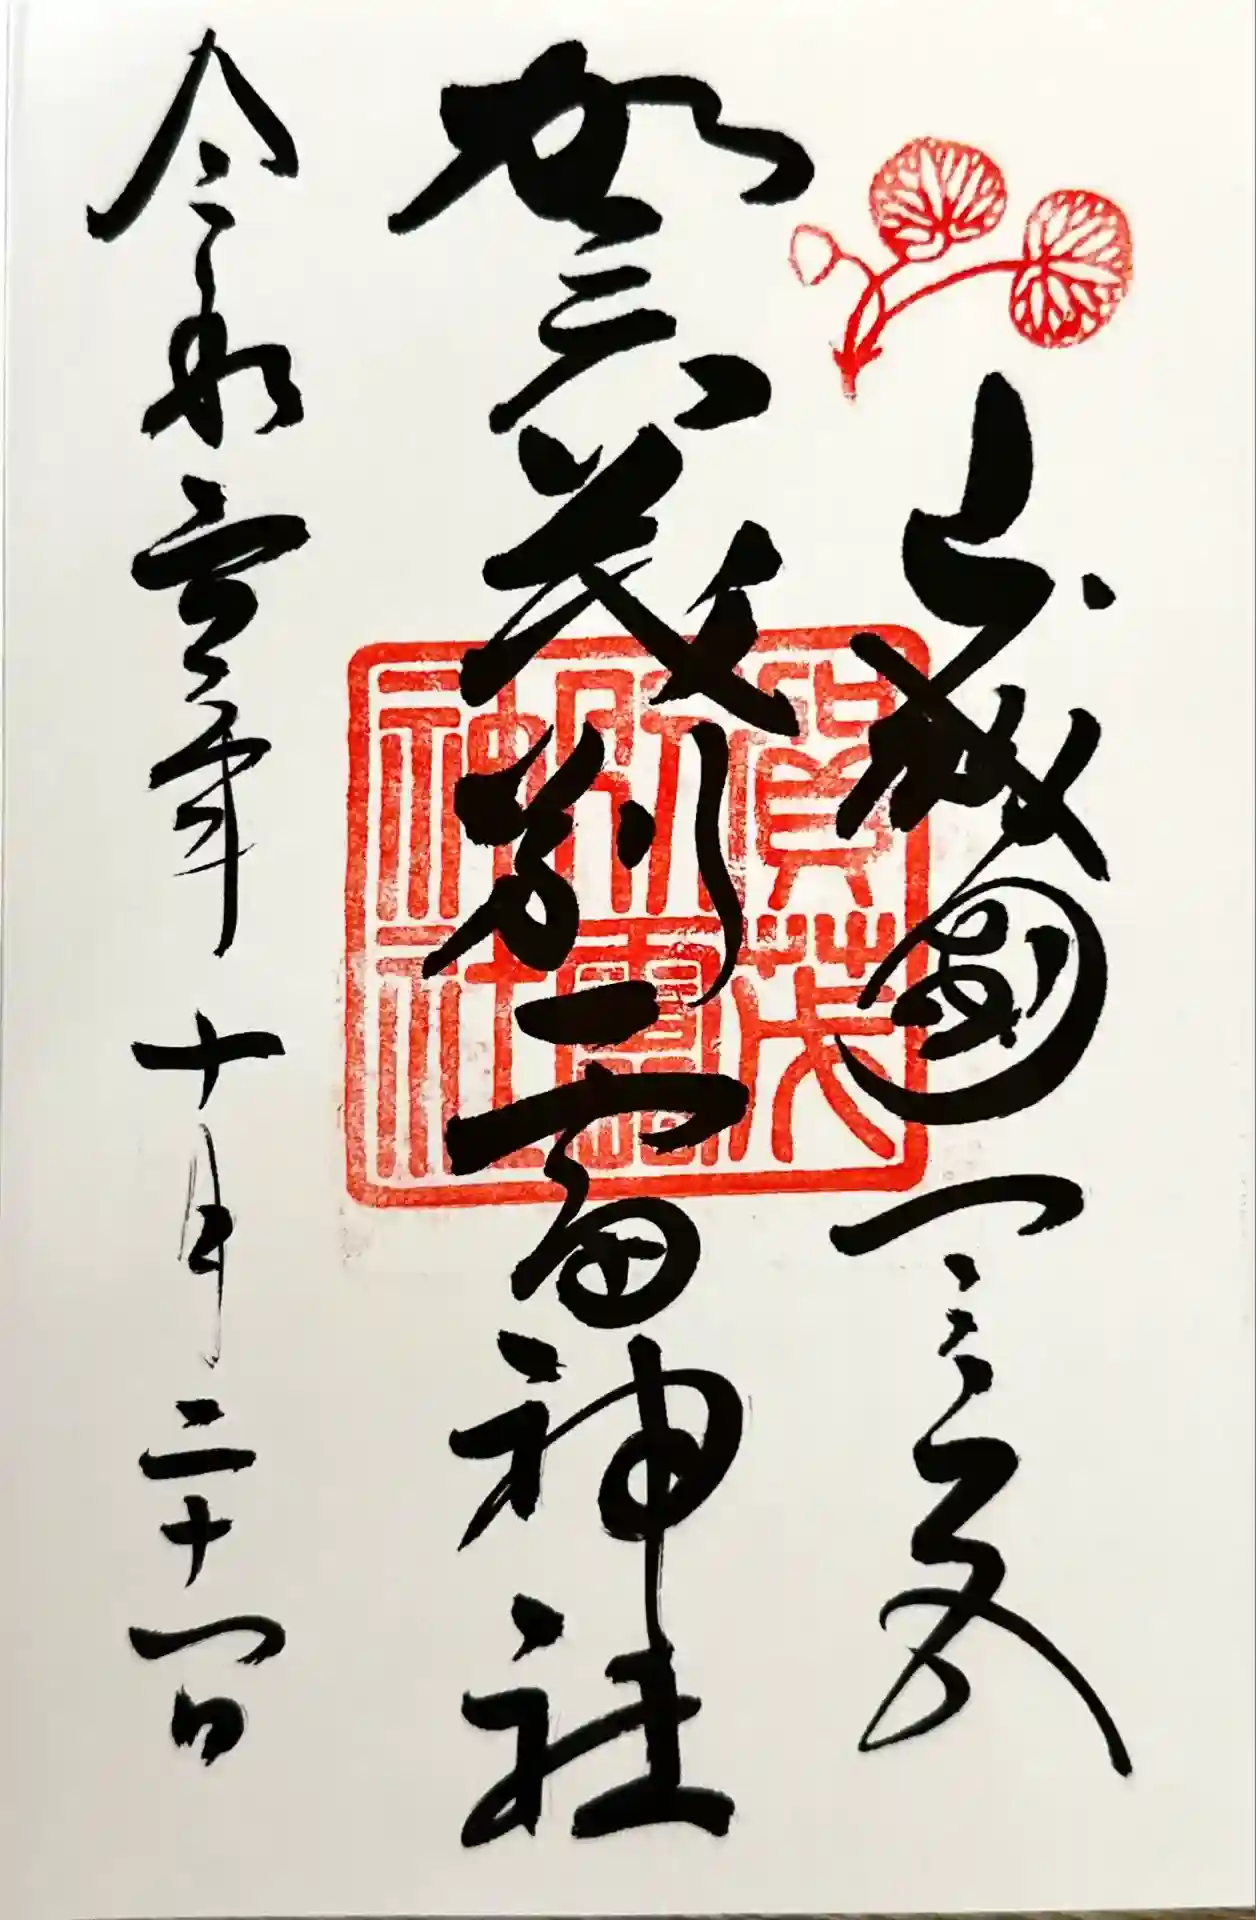 山城國一之宮
賀茂別雷神社
令和年十月二十一日
賀茂
別雷
神社